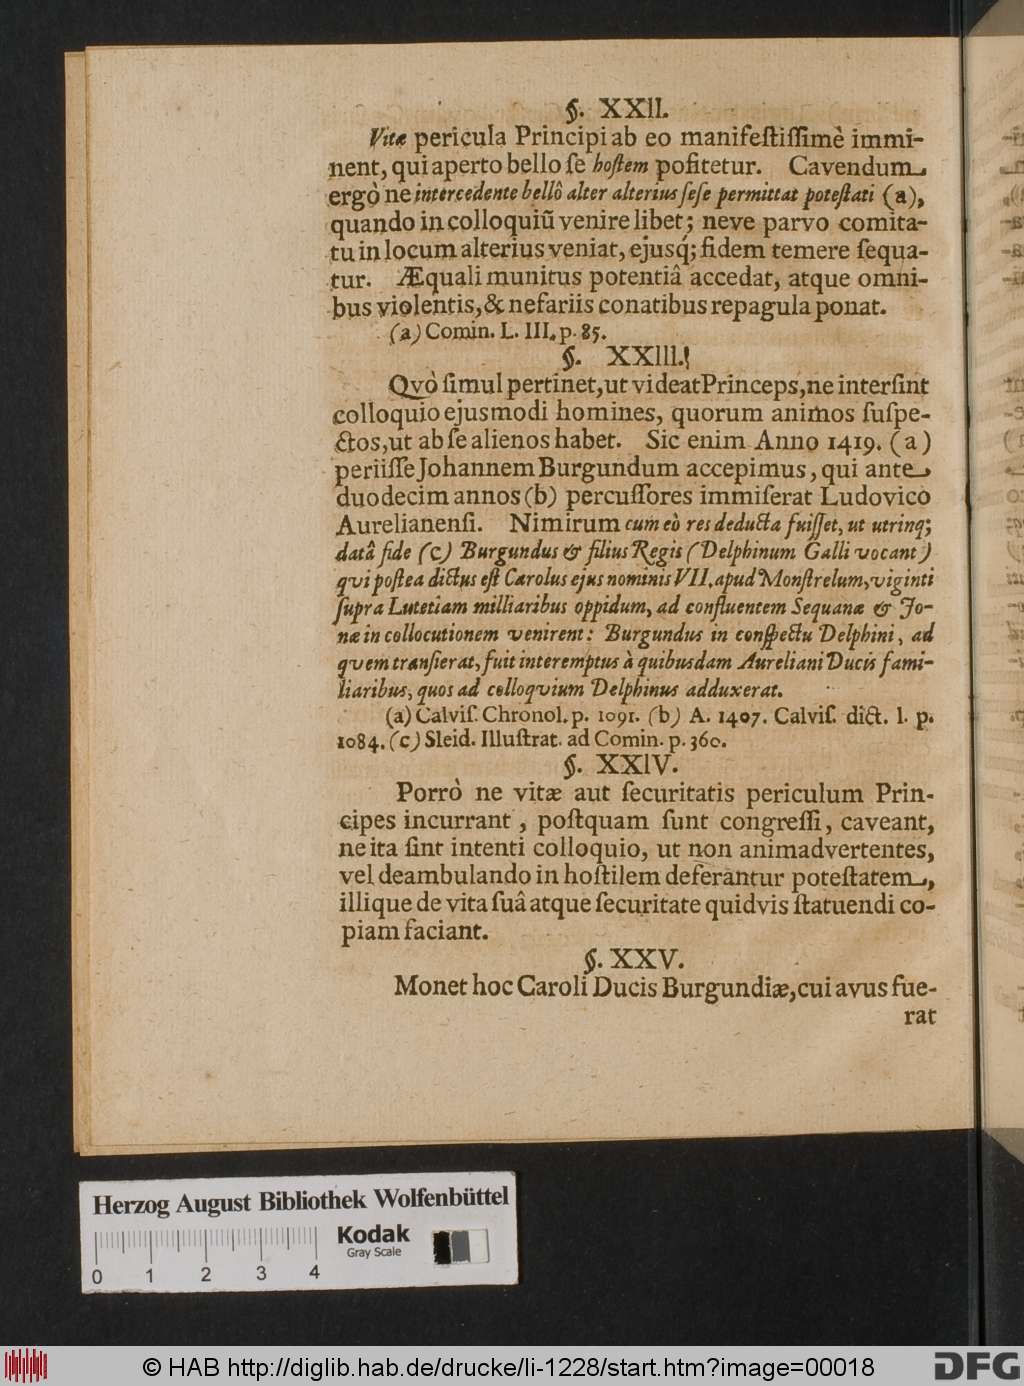 §. XXII.
Vitæ pericula Principi ab eo manifeſtiſſimè immi-
nent, qui aperto bello ſe hoſtem pofitetur. Cavendum
ergò ne intercedente bellô alter alterius ſeſe permittat poteſtati (a),
quando in colloquiũ venire libet; neve parvo comita-
tu in locum alterius veniat, ejusq́; fidem temere ſequa-
tur. Æquali munitus potentiâ accedat, atque omni-
bus violentis, & nefariis conatibus repagula ponat.
(a) Comin. L. III. p. 85.
§. XXIII.
Qvò ſimul pertinet, ut videat Princeps, ne interſint
colloquio ejusmodi homines, quorum animos ſuſpe-
ctos, ut ab ſe alienos habet. Sic enim Anno 1419. (a)
periiſſe Johannem Burgundum accepimus, qui ante
duodecim annos (b) percuſſores immiſerat Ludovico
Aurelianenſi. Nimirum cum eò res deducta fuiſſet, ut utrinq;
datâ fide (c) Burgundus & filius Regis (Delphinum Galli vocant)
qvi poſtea dictus eſt Carolus ejus nominis VII, apud Monſtrelum, viginti
ſupra Lutetiam milliaribus oppidum, ad confluentem Sequanæ & Jo-
næ in collocutionem venirent: Burgundus in conſpectu Delphini, ad
qvem tranſierat, fuit interemptus à quibusdam Aureliani Ducis fami-
liaribus, quos ad colloqvium Delphinus adduxerat.
(a) Calviſ. Chronol. p. 1091. (b) A. 1407. Calviſ. dict. l. p.
1084. (c) Sleid. Illuſtrat. ad Comin. p. 360.
§. XXIV.
Porrò ne vitæ aut ſecuritatis periculum Prin-
cipes incurrant, poſtquam ſunt congreſſi, caveant,
ne ita ſint intenti colloquio, ut non animadvertentes,
vel deambulando in hoſtilem deferantur poteſtatem,
illique de vita ſuâ atque ſecuritate quidvis ſtatuendi co-
piam faciant.
§. XXV.
Monet hoc Caroli Ducis Burgundiæ, cui avus fue-
rat
Herzog August Bibliothek Wolfenbüttel
Kodak
Gray Scale
0 1 2 3 4
© HAB http://diglib.hab.de/drucke/li-1228/start.htm?image=00018
DFG